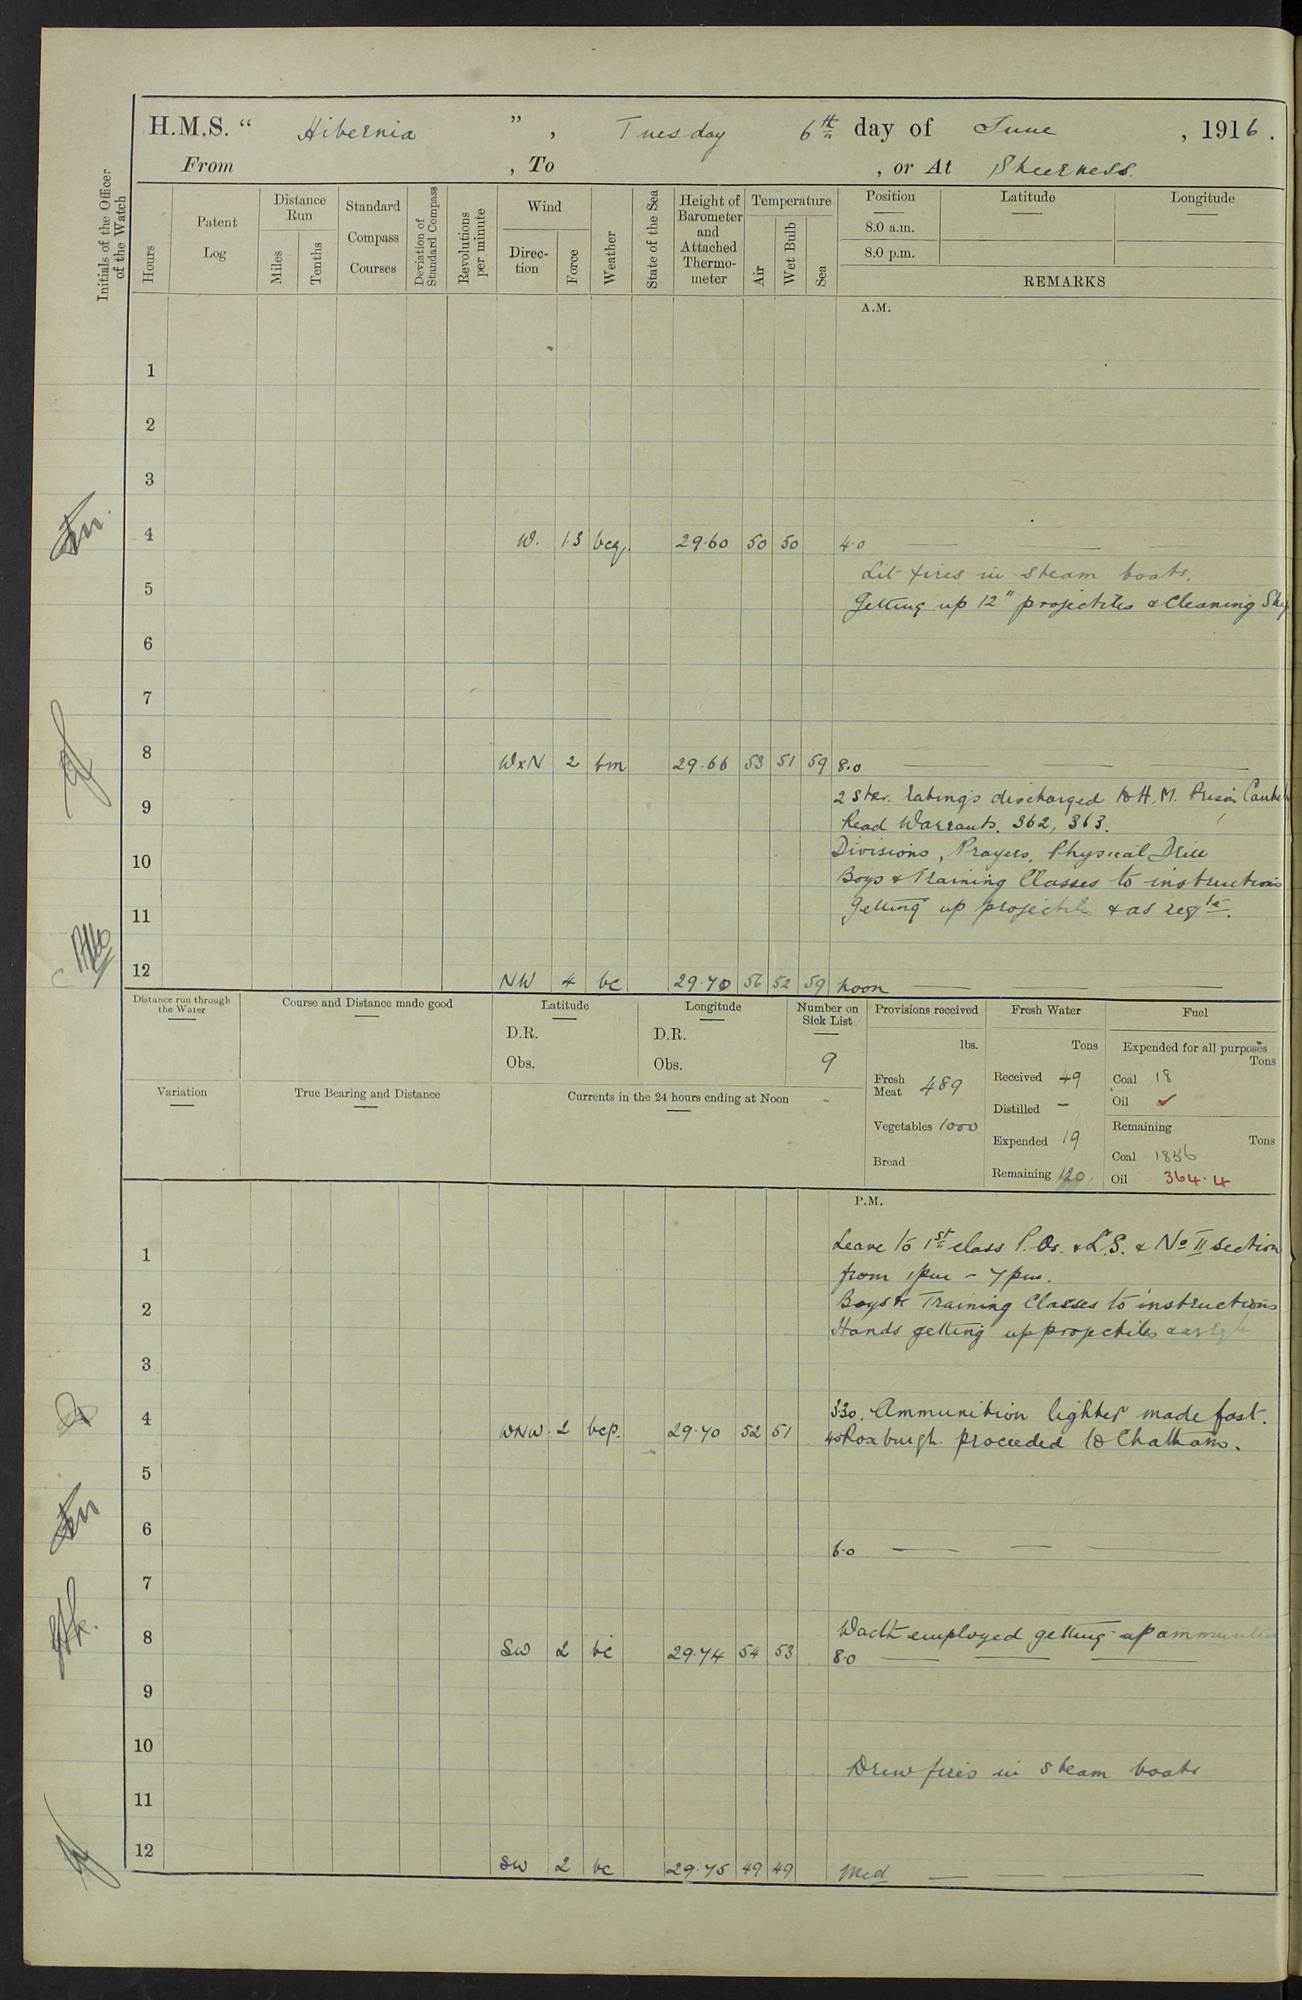 H.M.S. " Hibernia ", Tuesday 6th day of June, 1916.
From , To , or At Sheerness.
Initials of the Officer of the Watch
Hours
Patent Log
Distance Run
Miles
Tenths
Standard Compass Courses
Deviation of Standard Compass
Revolutions per minute
Wind
Direction
Force
Weather
State of the Sea
Height of Barometer and Attached Thermometer
Temperature
Air
Wet Bulb
Sea
Position
8.0 a.m.
8.0 p.m.
Latitude
Longitude
REMARKS
A.M.
1
2
3
4 W. 1.3 bcq. 29.60 50 50 4.0
Lit fires in steam boats.
5
Getting up 12" projectiles & Cleaning Ship
6
7
8 WxN 2 bm 29.66 53 51 59 8.0
9 2 Stkr. ratings discharged to H.M. Prison
Read Warrants. 362, 363.
10 Divisions, Prayers, Physical Drill
Boys & Training Classes to instructions
11 Getting up projectile & as reqte.
12 NW 4 bc 29.70 56 52 59 Noon
Distance run through the Water
Course and Distance made good
Latitude
D.R.
Obs.
Longitude
D.R.
Obs.
Number on Sick List
9
Provisions received
lbs.
Fresh Meat 489
Vegetables 1000
Bread
Fresh Water
Tons
Received 49
Distilled –
Expended 19
Remaining 120
Fuel
Expended for all purposes
Tons
Coal 18
Oil ✓
Remaining
Tons
Coal 1856
Oil 364.4
Variation
True Bearing and Distance
Currents in the 24 hours ending at Noon -
P.M.
1 Leave to 1st class P.Os. & L.S. & No II section
from 1pm – 7pm.
2 Boys & Training Classes to instructions
Hands getting up projectiles
3
4 330. Ammunition lighter made fast.
WNW. 2 bcp. 29.70 52 51 40 Roxburgh proceeded to Chatham.
5
6
6.0
7
8 Watch employed getting up ammunition
SW 2 bc 29.74 54 53 8.0
9
10
Drew fires in steam boats
11
12 SW 2 bc 29.75 49 49 Mid